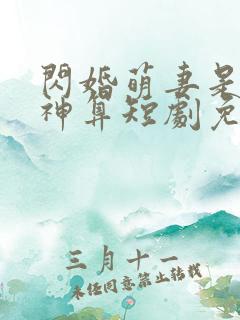 閃婚萌妻是
神算短劇免
三月十一
未任同意禁止转载